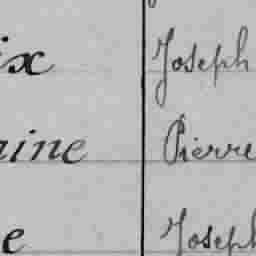 ix Joseph
aine Pierre
e Joseph